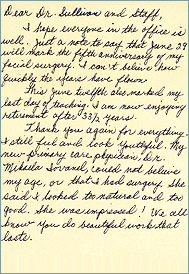 Dear Dr. Sullivan and Staff,
I hope everyone in the office is
well. Just a note to say that June 29
will mark the fifth anniversary of my
facial surgery. I can't believe how
quickly the years have flown.
This June twelfth also marked my
last day of teaching. I am now enjoying
retirement after 33½ years.
Thank you again for everything.
I still feel and look youthful. My
new primary care physician, Dr.
Mihaela, could not believe
my age, or that I had surgery. She
said I looked too natural and too
good. She was impressed! We all
know you do beautiful work that
lasts.